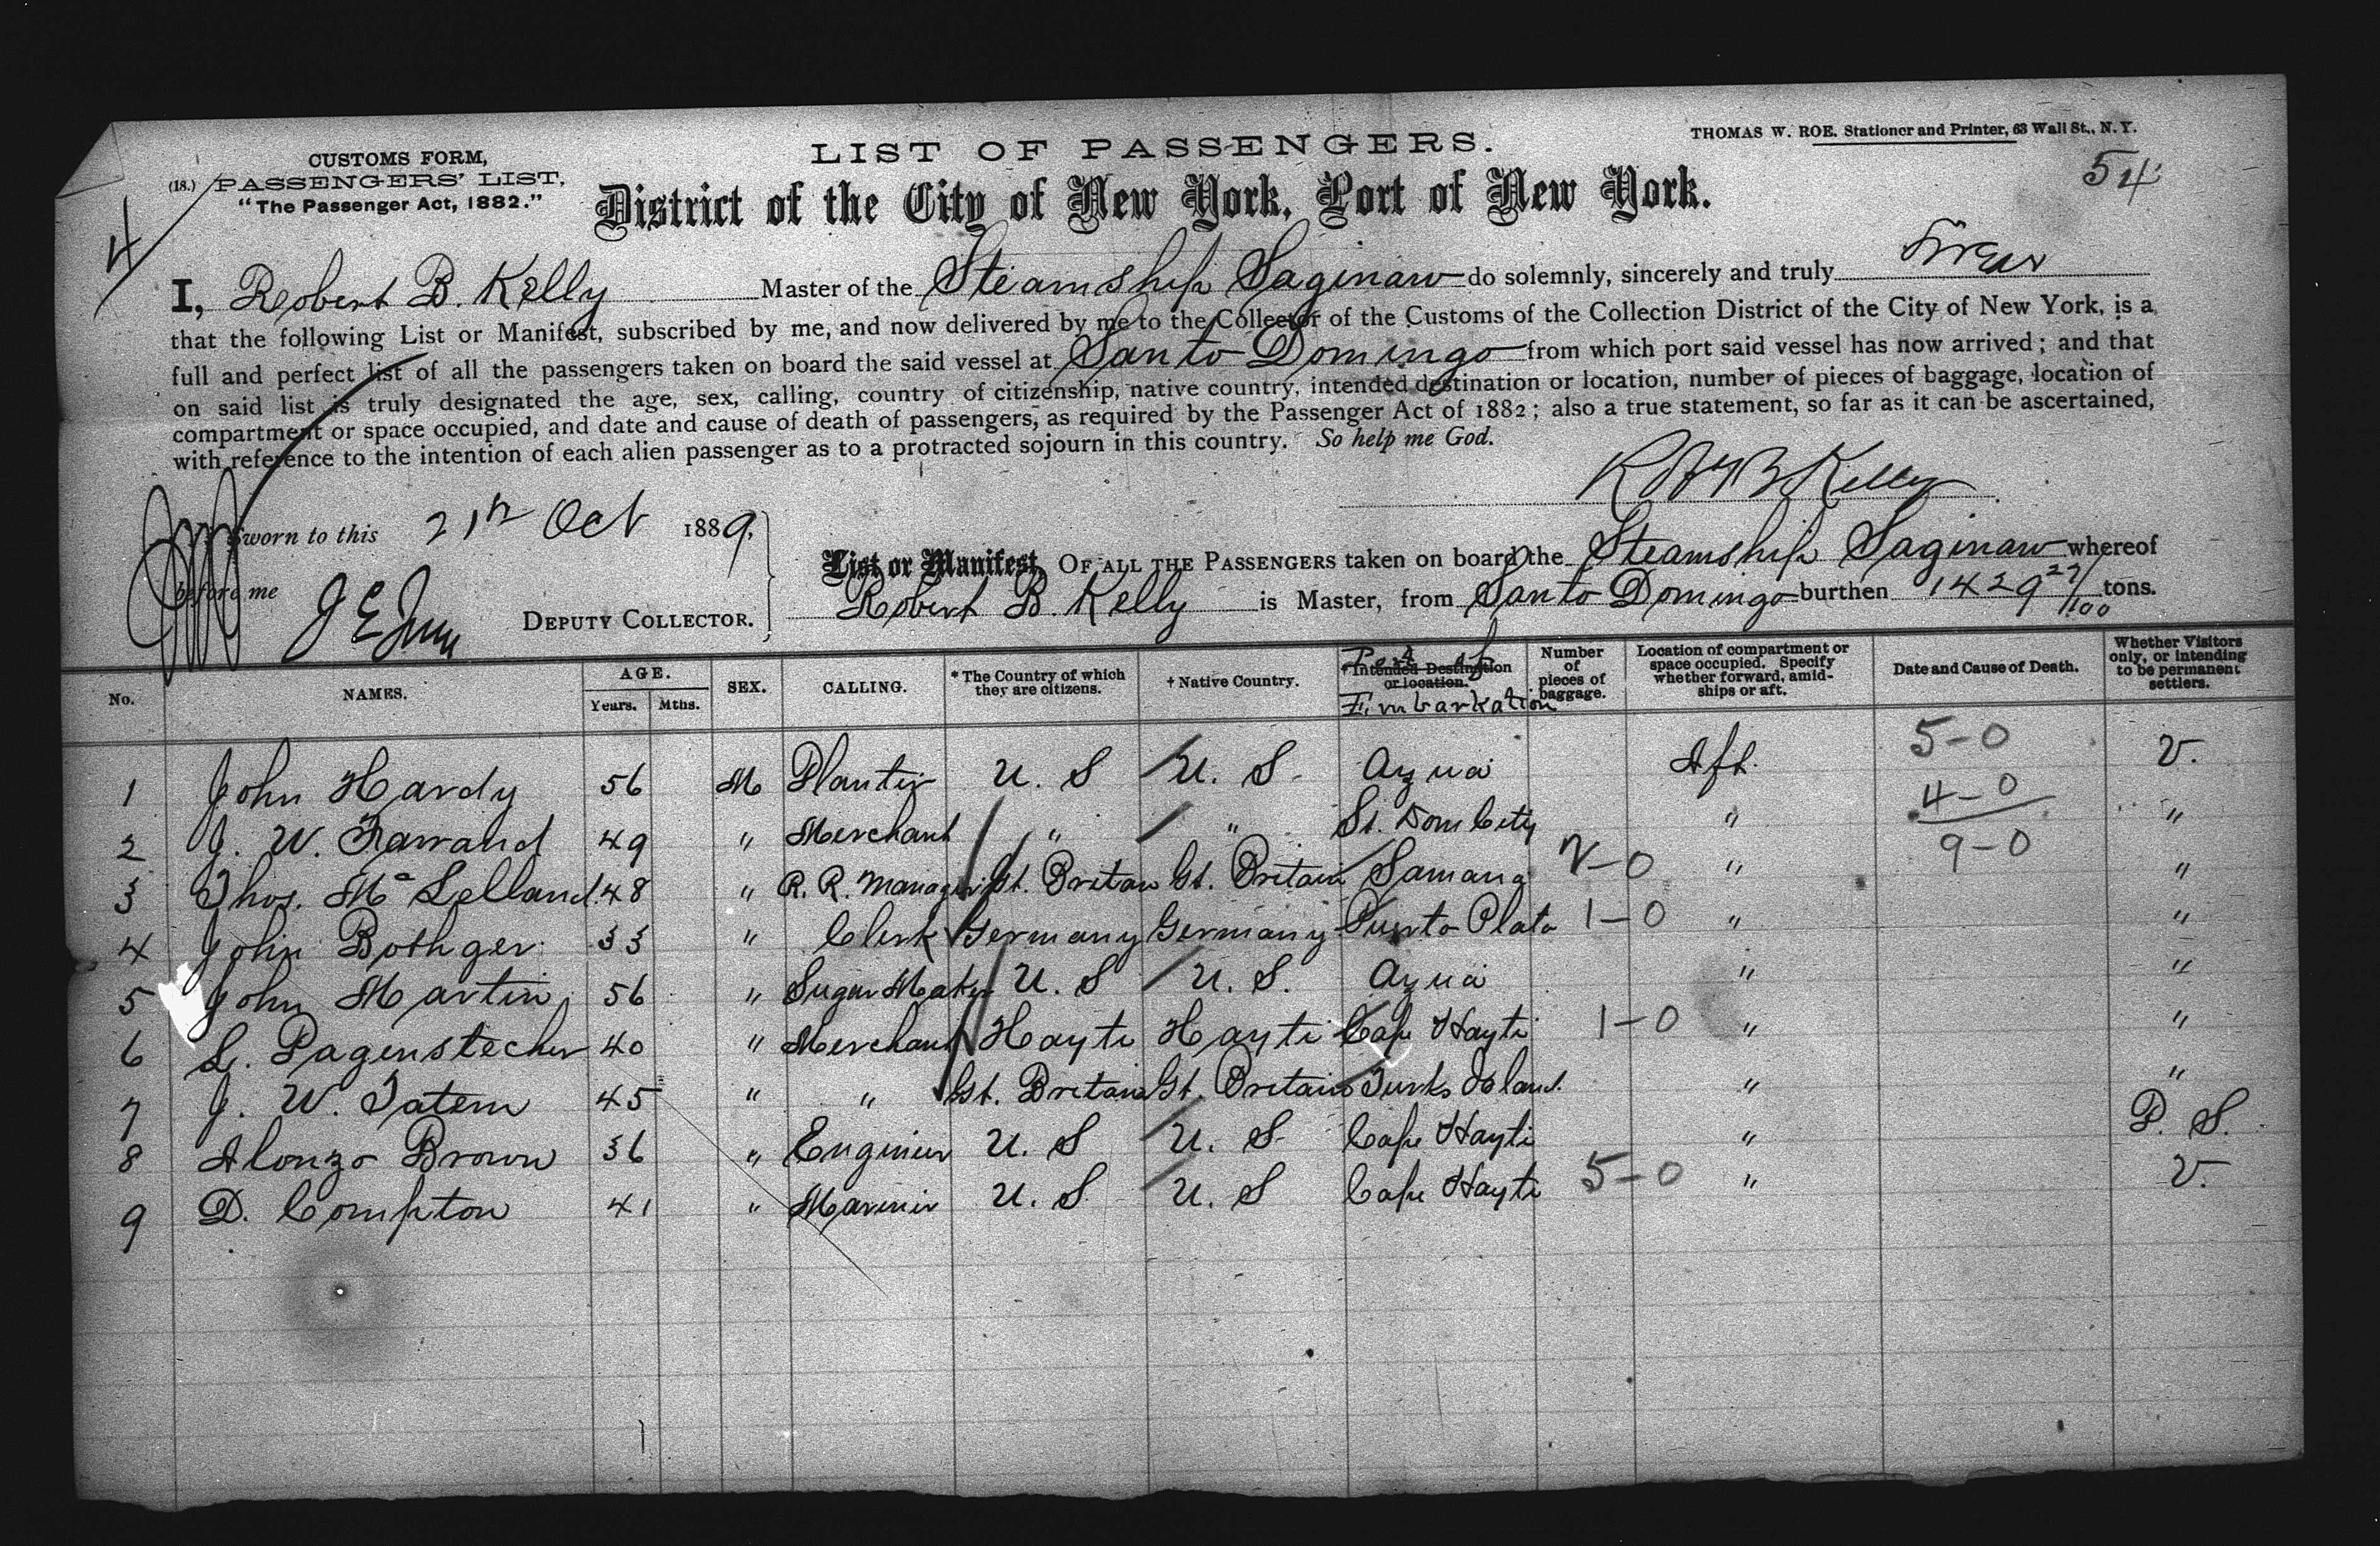 THOMAS W. ROE. Stationer and Printer, 63 Wall St., N. Y.
54
CUSTOMS FORM,
(18.) PASSENGERS' LIST,
"The Passenger Act, 1882."
4
LIST OF PASSENGERS.
District of the City of New York, Port of New York.
I, Robert B. Kelly Master of the Steamship Saginaw do solemnly, sincerely and truly Swear
that the following List or Manifest, subscribed by me, and now delivered by me to the Collector of the Customs of the Collection District of the City of New York, is a
full and perfect list of all the passengers taken on board the said vessel at Santo Domingo from which port said vessel has now arrived; and that
on said list is truly designated the age, sex, calling, country of citizenship, native country, intended destination or location, number of pieces of baggage, location of
compartment or space occupied, and date and cause of death of passengers, as required by the Passenger Act of 1882; also a true statement, so far as it can be ascertained,
with reference to the intention of each alien passenger as to a protracted sojourn in this country. So help me God.
Robt B Kelly
Sworn to this 21st Oct 1889,
before me
DEPUTY COLLECTOR.
List or Manifest, OF ALL THE PASSENGERS taken on board the Steamship Saginaw whereof
Robert B. Kelly is Master, from Santo Domingo burthen 1429 27/100 tons.
No. NAMES. AGE. Years. Mths. SEX. CALLING. * The Country of which they are citizens. † Native Country. ‡ Intended Destination or location. Port of Embarkation Number of pieces of baggage. Location of compartment or space occupied. Specify whether forward, amidships or aft. Date and Cause of Death. Whether Visitors only, or intending to be permanent settlers.
1 John Hardy 56 M Planter U. S U. S. Azua Aft. 5-0 V.
2 J. W. Farrand 49 " Merchant " " St. Dom City " 4-0 "
3 Thos. Mc Lelland. 48 " R. R. Manager Gt. Britain Gt. Britain Samana 2-0 " 9-0 "
4 John Bothger 33 " Clerk Germany Germany Puerto Plata 1-0 " "
5 John Martin 56 " Sugar Maker U. S U. S. Azua " "
6 L. Pagenstecher 40 " Merchant Hayti Hayti Cape Hayti 1-0 " "
7 J. W. Tatem 45 " " Gt. Britain Gt. Britain Turks Island. " "
8 Alonzo Brown 36 " Engineer U. S U. S Cape Hayti " P. S.
9 D. Compton 41 " Mariner U. S. U. S Cape Hayti 5-0 " V.